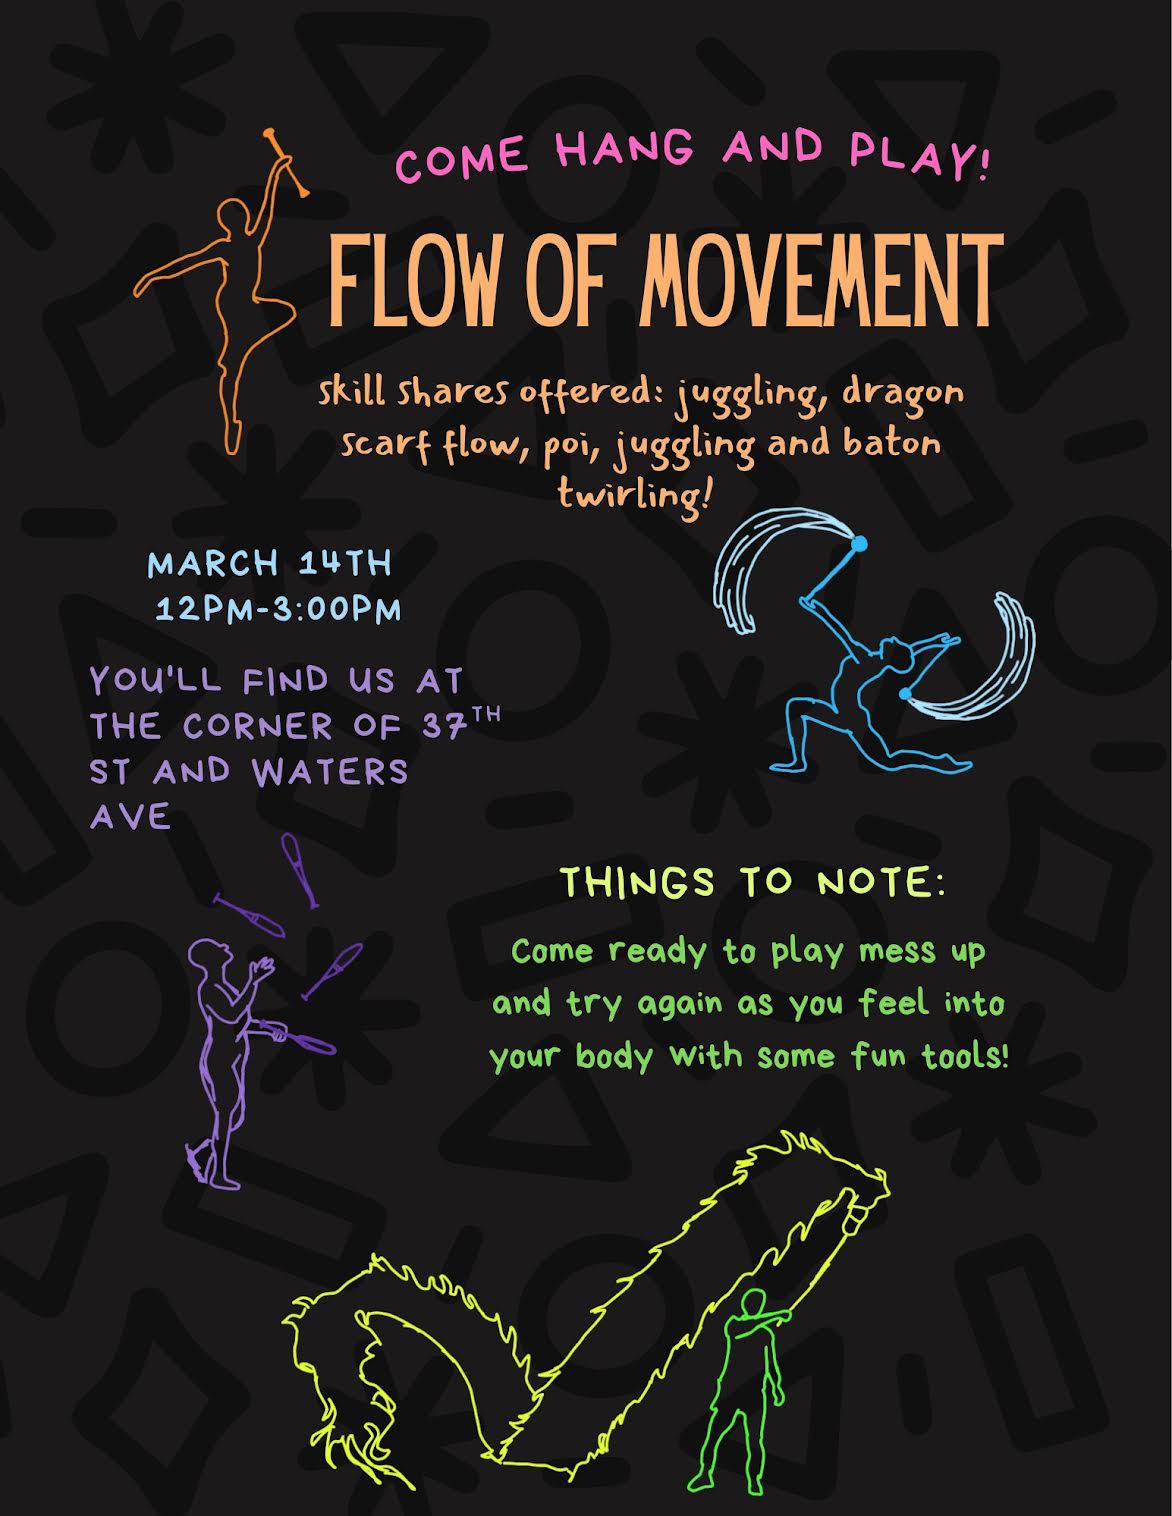 COME HANG AND PLAY!
FLOW OF MOVEMENT
skill shares offered: juggling, dragon
scarf flow, poi, juggling and baton
twirling!
MARCH 14TH
12PM-3:00PM
YOU'LL FIND US AT
THE CORNER OF 37TH
ST AND WATERS
AVE
THINGS TO NOTE:
Come ready to play mess up
and try again as you feel into
your body with some fun tools!